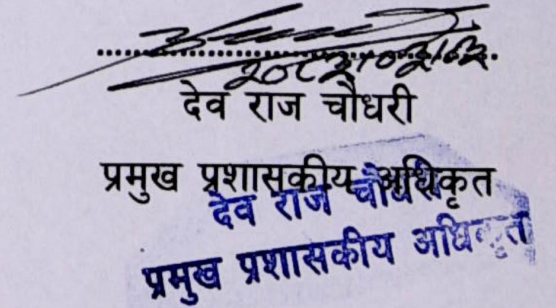 देव राज चौधरी
प्रमुख प्रशासकीय अधिकृत
देव राज चौधरी
प्रमुख प्रशासकीय अधिकृत